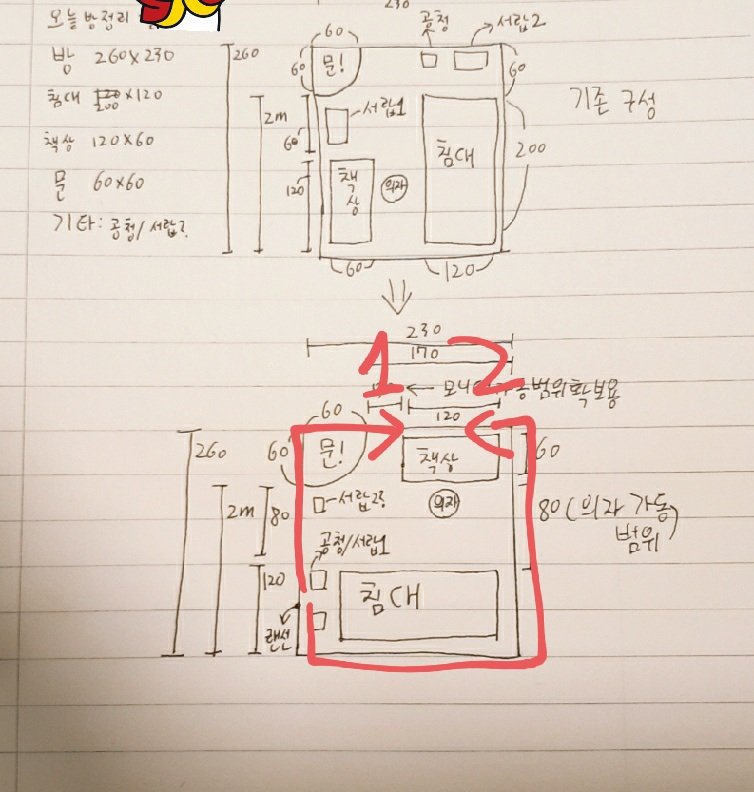 오늘 방정리
방 260x230
침대 200x120
책상 120x60
문 60x60
기타: 공청/서랍2
230
60
공청
서랍2
260
60
문!
60
2m
서랍1
60
침대
기존 구성
200
120
책상
의자
60
120
230
170
1 2
120
60
260
60
문!
책상
60
2m
80
서랍2
의자
80 (의자 가동
범위)
공청/서랍1
120
침대
랜선